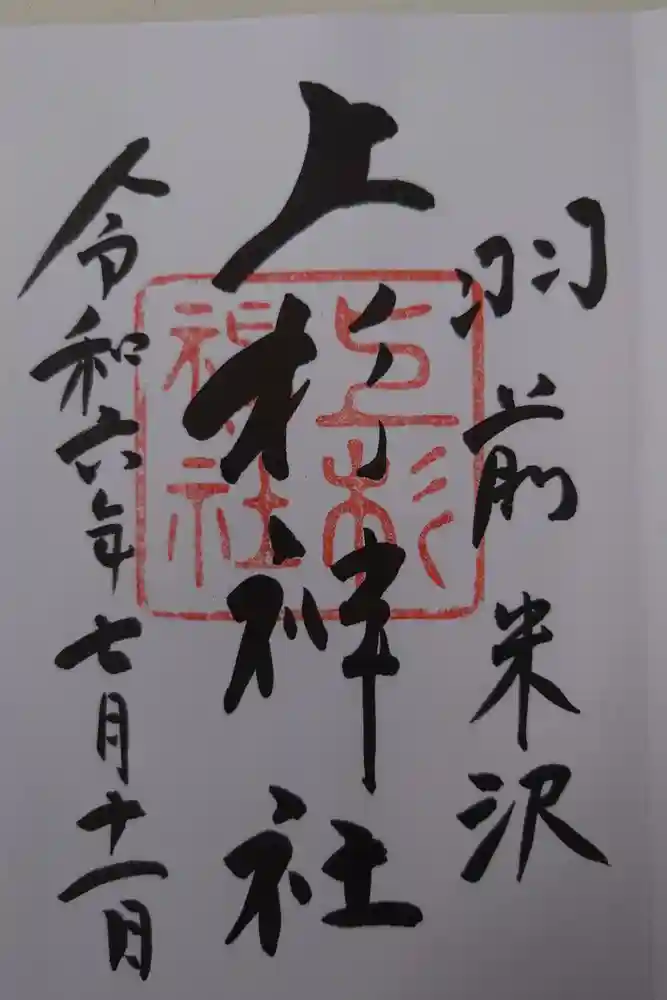 羽前米沢
上杉神社
上杉
神社
令和六年七月十一日